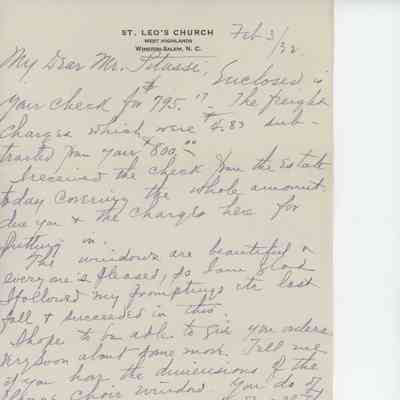 ST. LEO'S CHURCH
WEST HIGHLANDS
WINSTON-SALEM, N. C.
Feb 3/32
My Dear Mr. Pitassi, Enclosed is
your check for $795.17. The freight
charges which were $4.83 sub-
tracted from your $800.00
I received the check from the Estate
today covering the whole amount
due you & the charges here for
putting in.
The windows are beautiful &
every one is pleased, so I am glad
I followed my promptings etc last
fall & succeeded in this.
I hope to be able to give you orders
very soon about some more. Tell me
if you have the dimensions of the
Choir window. You do of